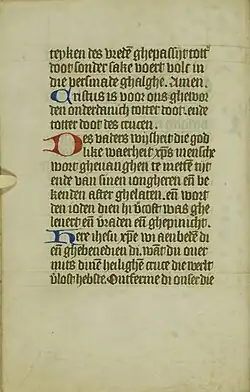 teyken des vreden ghepassijt tott
door sonder sake voert volc in
die persinade ghalghe. Amen.
Cristus is voor ons ghewor
den onderdanich totter doot. ende
totter doot des cruces.
Des vaders wijsheit die god
like waerheit xp̄s mensche
wort gheuanghen te metten tijt
ende van sinen iongheren en̄ be
kenden after ghelaten. en̄ wort
den ioden dien hi v̄cost was ghe
leuert en̄ v̄raden en̄ ghepinicht.
Here ihesu xp̄e wi aenbeden di
en̄ ghebenedien di. wāt du ouer
mits dinē heilighē cruce die werlt
v̄lost hebste. Ontferme di onser die